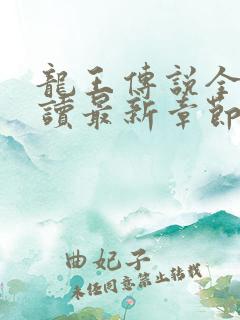 龍王傳説全
讀最新章節
曲妃子
未经同意禁止转载